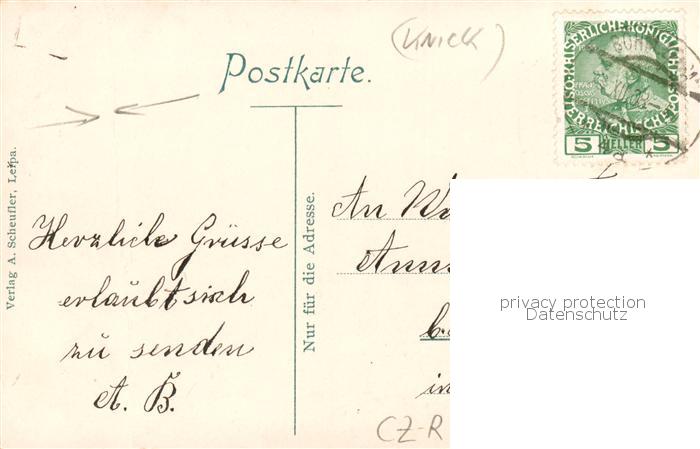 (KNICK)
Postkarte.
KAISERLICHE KÖNIGLICHE
ÖSTERREICHISCHE POST
5 HELLER 5
Verlag A. Scheufler, Leipa.
Nur für die Adresse.
Herzliche Grüsse
erlaubt sich
zu senden
A. B.
An
privacy protection
Datenschutz
in
CZ-R